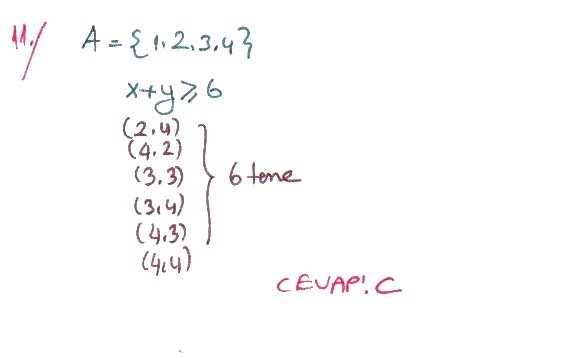 11.) A = {1,2,3,4}
x+y ≥ 6
(2,4)
(4,2)
(3,3) } 6 tane
(3,4)
(4,3)
(4,4)
CEVAP: C